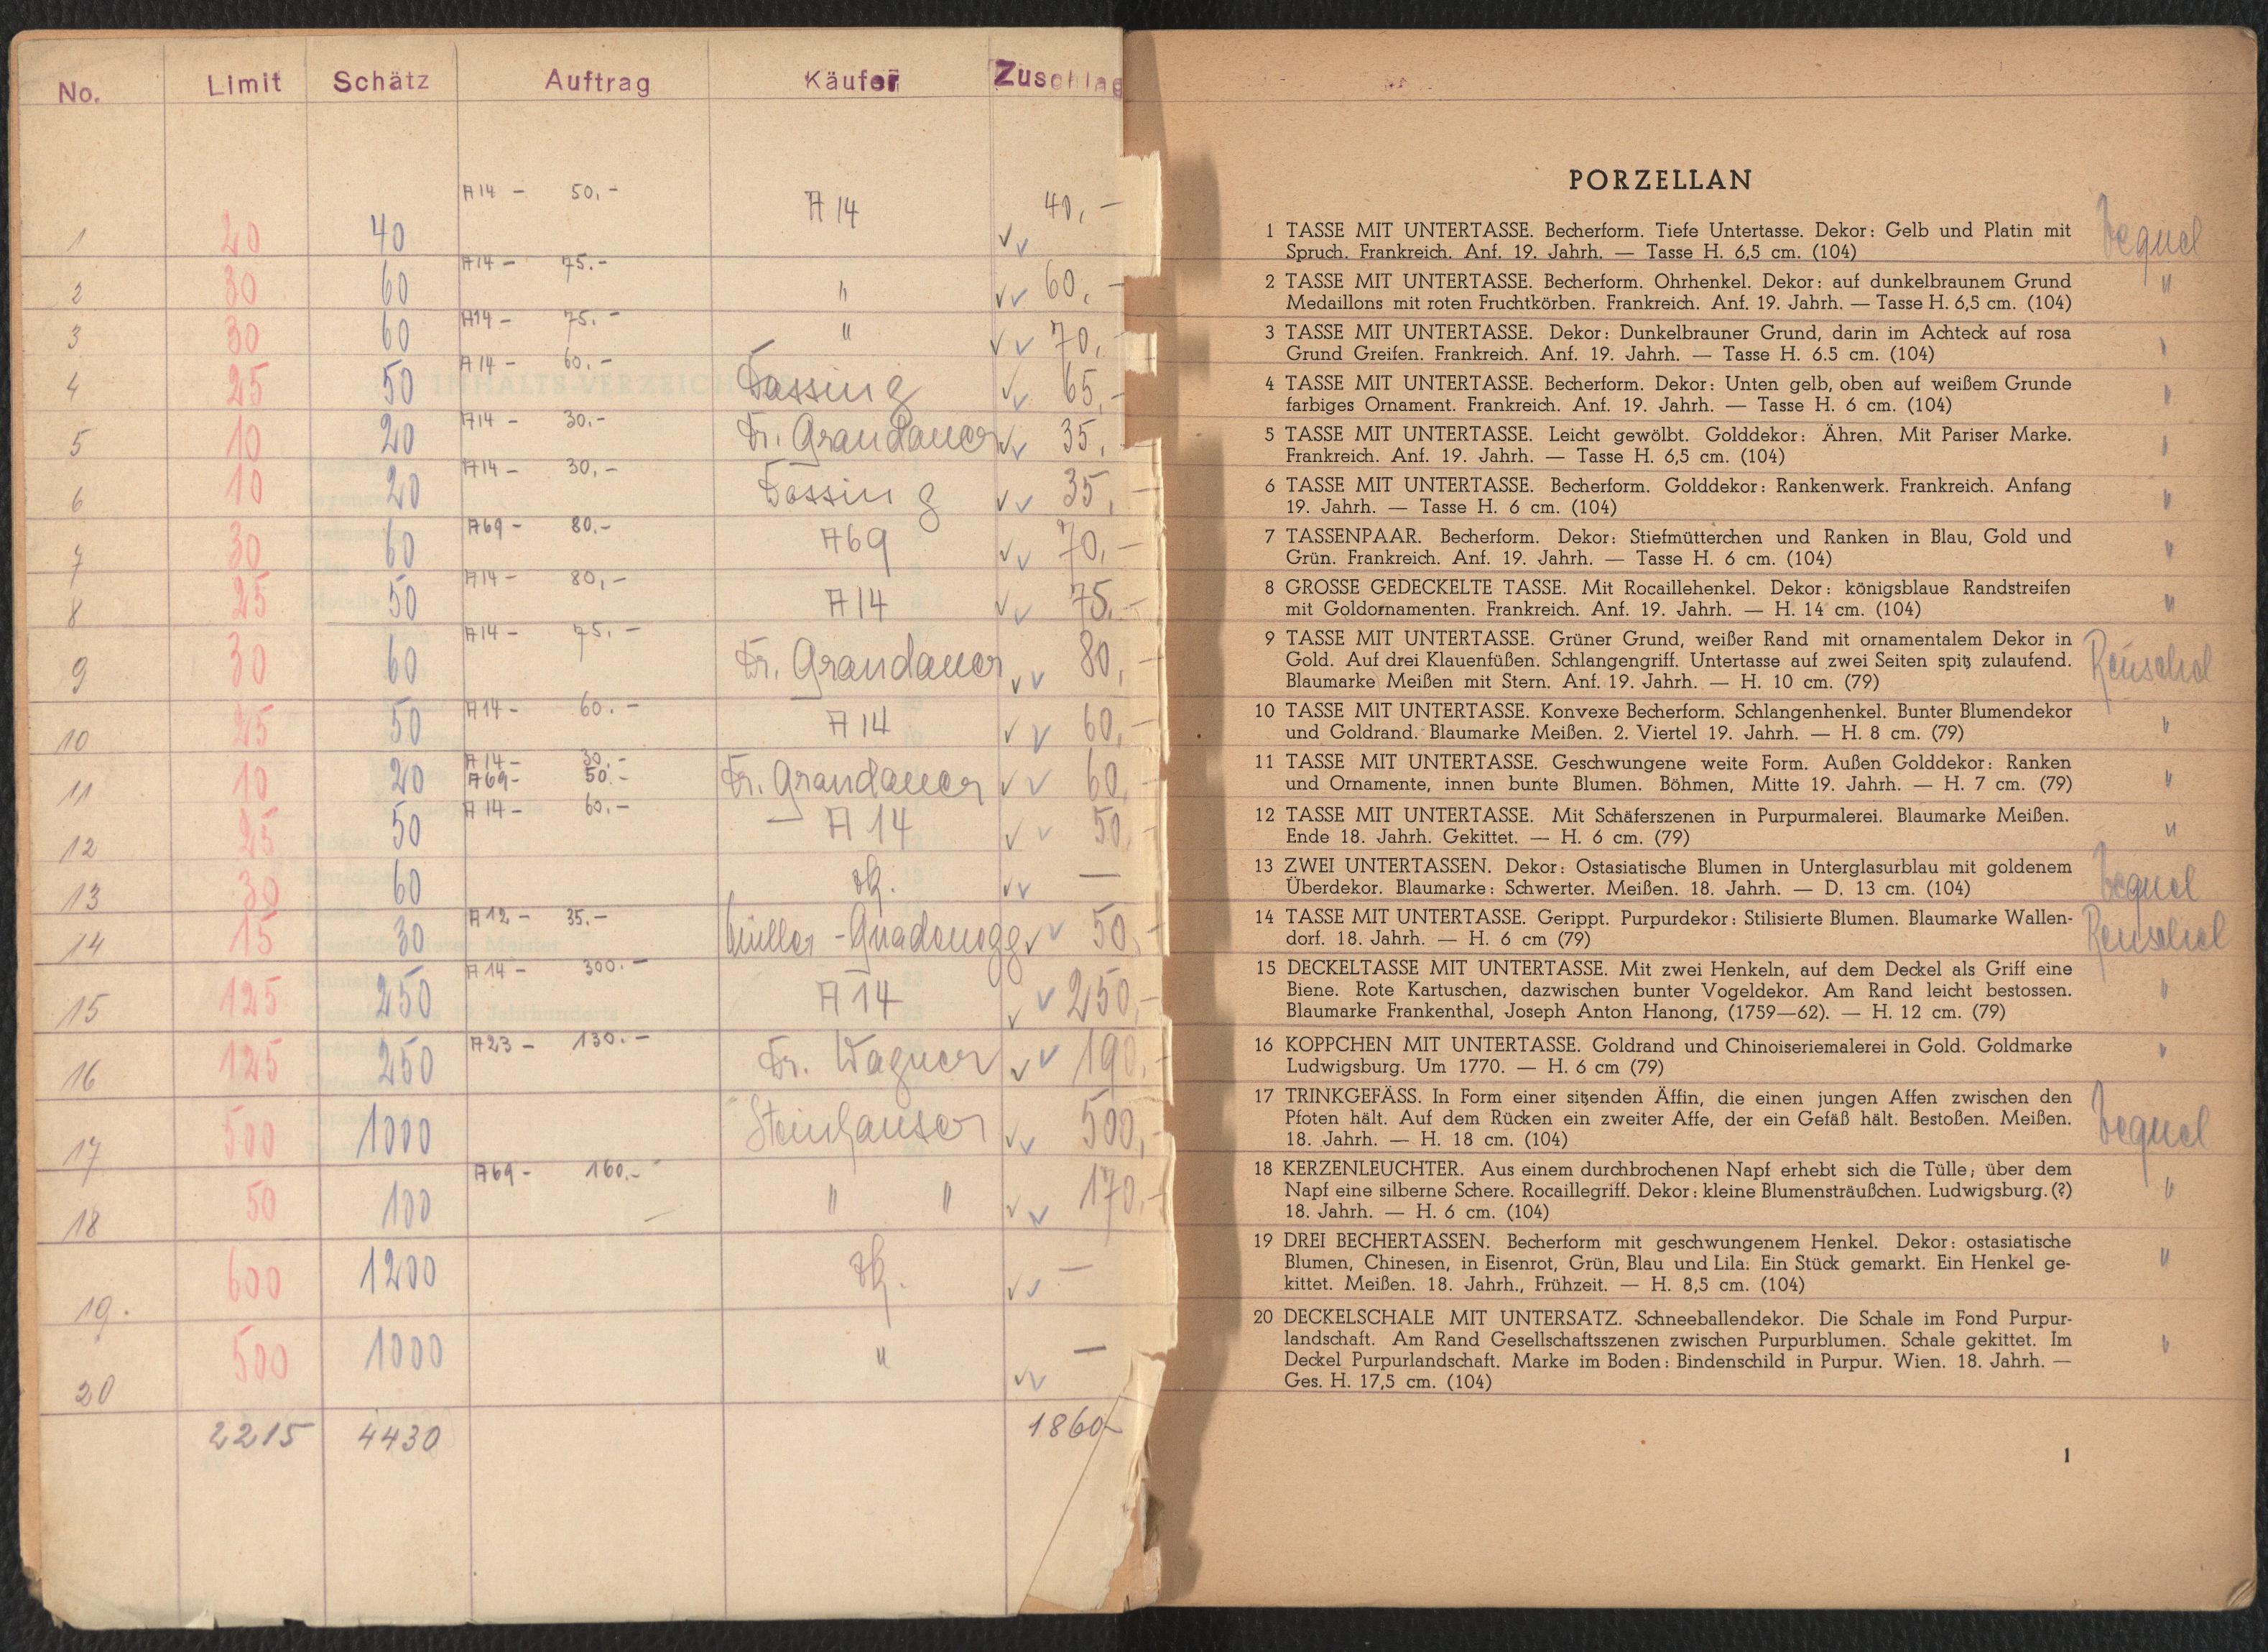 No. Limit Schätz Auftrag Käufer Zuschlag
A14 - 50,-
1 20 40 A14 40,-
A14 - 75.-
2 30 60 " 60,-
A14 - 75.-
3 30 60 " 70,-
A14 - 60,-
4 25 50 65,-
A14 - 30.-
5 10 20 Dr. Grandauer 35,
A14 - 30,-
6 10 20 35,-
A69 - 80.-
7 30 60 A69 70,-
A14 - 80,-
8 25 50 A14 75.-
A14 - 75.-
9 30 60 Dr. Grandauer 80,-
A14 - 60.-
10 25 50 A14 60,-
A14 - 30.-
A69 - 50.-
11 10 20 Dr. Grandauer 60,
A14 - 60.-
12 25 50 A14 50,-
13 30 60 —
A12 - 35.-
14 15 30 50,-
A14 - 300.-
15 125 250 A14 250,-
A23 - 130.-
16 125 250 Dr. Wagner 190,-
17 500 1000 Steinhauser 500,-
A69 - 160.-
18 50 100 " " 170,-
19. 600 1200 —
20 500 1000 " —
2215 4430 1860-
PORZELLAN
1 TASSE MIT UNTERTASSE. Becherform. Tiefe Untertasse. Dekor: Gelb und Platin mit
Spruch. Frankreich. Anf. 19. Jahrh. — Tasse H. 6,5 cm. (104)
2 TASSE MIT UNTERTASSE. Becherform. Ohrhenkel. Dekor: auf dunkelbraunem Grund "
Medaillons mit roten Fruchtkörben. Frankreich. Anf. 19. Jahrh. — Tasse H. 6,5 cm. (104)
3 TASSE MIT UNTERTASSE. Dekor: Dunkelbrauner Grund, darin im Achteck auf rosa "
Grund Greifen. Frankreich. Anf. 19. Jahrh. — Tasse H. 6.5 cm. (104)
4 TASSE MIT UNTERTASSE. Becherform. Dekor: Unten gelb, oben auf weißem Grunde "
farbiges Ornament. Frankreich. Anf. 19. Jahrh. — Tasse H. 6 cm. (104)
5 TASSE MIT UNTERTASSE. Leicht gewölbt. Golddekor: Ähren. Mit Pariser Marke. "
Frankreich. Anf. 19. Jahrh. — Tasse H. 6,5 cm. (104)
6 TASSE MIT UNTERTASSE. Becherform. Golddekor: Rankenwerk. Frankreich. Anfang "
19. Jahrh. — Tasse H. 6 cm. (104)
7 TASSENPAAR. Becherform. Dekor: Stiefmütterchen und Ranken in Blau, Gold und "
Grün. Frankreich. Anf. 19. Jahrh. — Tasse H. 6 cm. (104)
8 GROSSE GEDECKELTE TASSE. Mit Rocaillehenkel. Dekor: königsblaue Randstreifen "
mit Goldornamenten. Frankreich. Anf. 19. Jahrh. — H. 14 cm. (104)
9 TASSE MIT UNTERTASSE. Grüner Grund, weißer Rand mit ornamentalem Dekor in
Gold. Auf drei Klauenfüßen. Schlangengriff. Untertasse auf zwei Seiten spitz zulaufend. Reuschel
Blaumarke Meißen mit Stern. Anf. 19. Jahrh. — H. 10 cm. (79)
10 TASSE MIT UNTERTASSE. Konvexe Becherform. Schlangenhenkel. Bunter Blumendekor "
und Goldrand. Blaumarke Meißen. 2. Viertel 19. Jahrh. — H. 8 cm. (79)
11 TASSE MIT UNTERTASSE. Geschwungene weite Form. Außen Golddekor: Ranken "
und Ornamente, innen bunte Blumen. Böhmen, Mitte 19. Jahrh. — H. 7 cm. (79)
12 TASSE MIT UNTERTASSE. Mit Schäferszenen in Purpurmalerei. Blaumarke Meißen. "
Ende 18. Jahrh. Gekittet. — H. 6 cm. (79)
13 ZWEI UNTERTASSEN. Dekor: Ostasiatische Blumen in Unterglasurblau mit goldenem
Überdekor. Blaumarke: Schwerter. Meißen. 18. Jahrh. — D. 13 cm. (104)
14 TASSE MIT UNTERTASSE. Gerippt. Purpurdekor: Stilisierte Blumen. Blaumarke Wallen- Reuschel
dorf. 18. Jahrh. — H. 6 cm (79)
15 DECKELTASSE MIT UNTERTASSE. Mit zwei Henkeln, auf dem Deckel als Griff eine
Biene. Rote Kartuschen, dazwischen bunter Vogeldekor. Am Rand leicht bestossen. "
Blaumarke Frankenthal, Joseph Anton Hanong, (1759—62). — H. 12 cm. (79)
16 KOPPCHEN MIT UNTERTASSE. Goldrand und Chinoiseriemalerei in Gold. Goldmarke "
Ludwigsburg. Um 1770. — H. 6 cm (79)
17 TRINKGEFÄSS. In Form einer sitzenden Äffin, die einen jungen Affen zwischen den
Pfoten hält. Auf dem Rücken ein zweiter Affe, der ein Gefäß hält. Bestoßen. Meißen.
18. Jahrh. — H. 18 cm. (104)
18 KERZENLEUCHTER. Aus einem durchbrochenen Napf erhebt sich die Tülle; über dem
Napf eine silberne Schere. Rocaillegriff. Dekor: kleine Blumensträußchen. Ludwigsburg. (?) "
18. Jahrh. — H. 6 cm. (104)
19 DREI BECHERTASSEN. Becherform mit geschwungenem Henkel. Dekor: ostasiatische
Blumen, Chinesen, in Eisenrot, Grün, Blau und Lila. Ein Stück gemarkt. Ein Henkel ge- "
kittet. Meißen. 18. Jahrh., Frühzeit. — H. 8,5 cm. (104)
20 DECKELSCHALE MIT UNTERSATZ. Schneeballendekor. Die Schale im Fond Purpur-
landschaft. Am Rand Gesellschaftsszenen zwischen Purpurblumen. Schale gekittet. Im "
Deckel Purpurlandschaft. Marke im Boden: Bindenschild in Purpur. Wien. 18. Jahrh. —
Ges. H. 17,5 cm. (104)
1